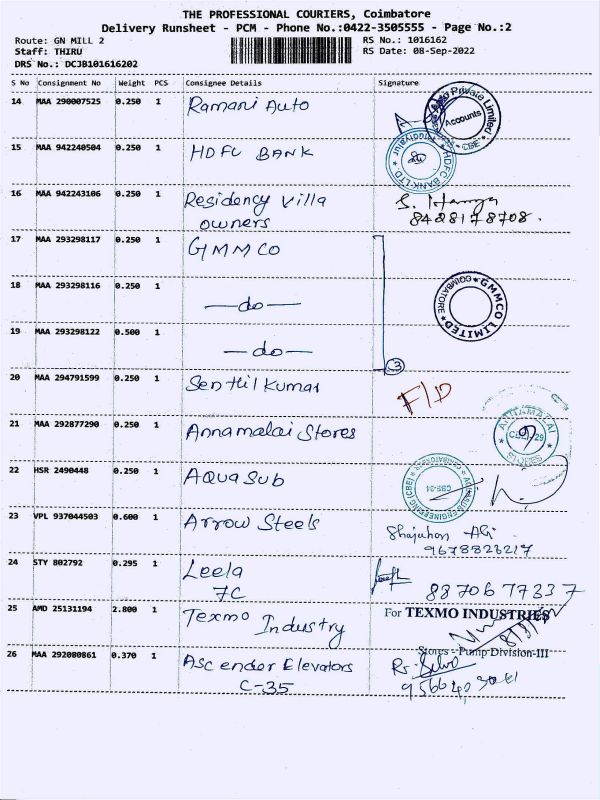 THE PROFESSIONAL COURIERS, Coimbatore
Delivery Runsheet - PCM - Phone No.:0422-3505555 - Page No.:2
Route: GN MILL 2 RS No.: 1016162
Staff: THIRU RS Date: 08-Sep-2022
DRS No.: DCJB101616202
S No Consignment No Weight PCS Consignee Details Signature
14 MAA 290007525 0.250 1 Ramani Auto
Private Limited
Accounts
CBE
15 MAA 942240504 0.250 1 HDFC BANK
HDFC BANK LTD
16 MAA 942243106 0.250 1 Residency Villa
owners
8428178708.
17 MAA 293298117 0.250 1 GMMCO
18 MAA 293298116 0.250 1 —do—
GMMCO LIMITED
COIMBATORE
19 MAA 293298122 0.500 1 —do—
3
20 MAA 294791599 0.250 1 Senthil Kumar F/D
21 MAA 292877290 0.250 1 Annamalai Stores
ANNAMALAI
STORES
CBE-29
22 HSR 2490448 0.250 1 Aqua Sub
23 VPL 937044503 0.600 1 Arrow Steels
Shajahan Ali
9678826217
24 STY 802792 0.295 1 Leela
7C
88706 77337
25 AMD 25131194 2.800 1 Texmo Industry
For TEXMO INDUSTRIES
Stores - Pump Division-III
26 MAA 292080861 0.370 1 Ascender Elevators
C-35